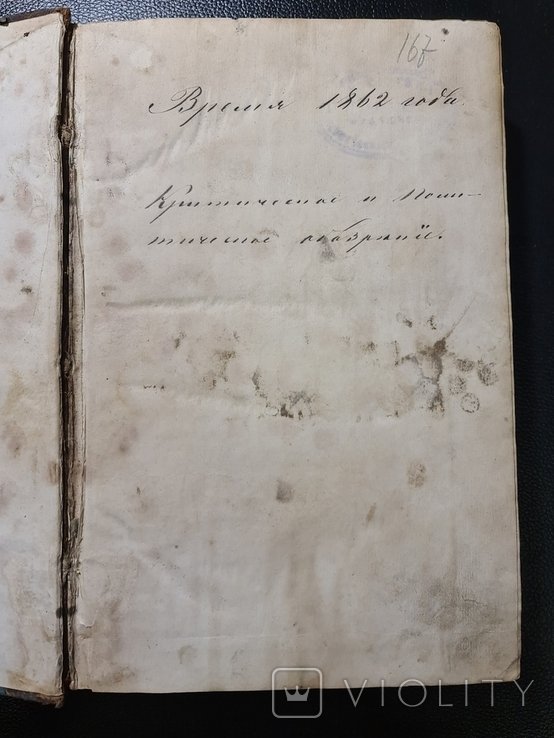 167
Время 1862 года.
Критическое и Поли-
тическое обозрѣніе.
VIOLITY